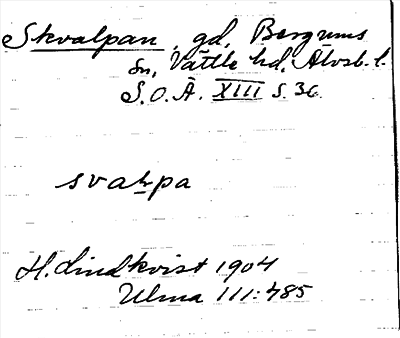 Skvalpan, gd, Bergums
sn, Vättle hd, Älvsb. l.
S.O.Ä. XIII s. 36.
svaɫpa
H. Lindkvist 1904
Ulma 111:485